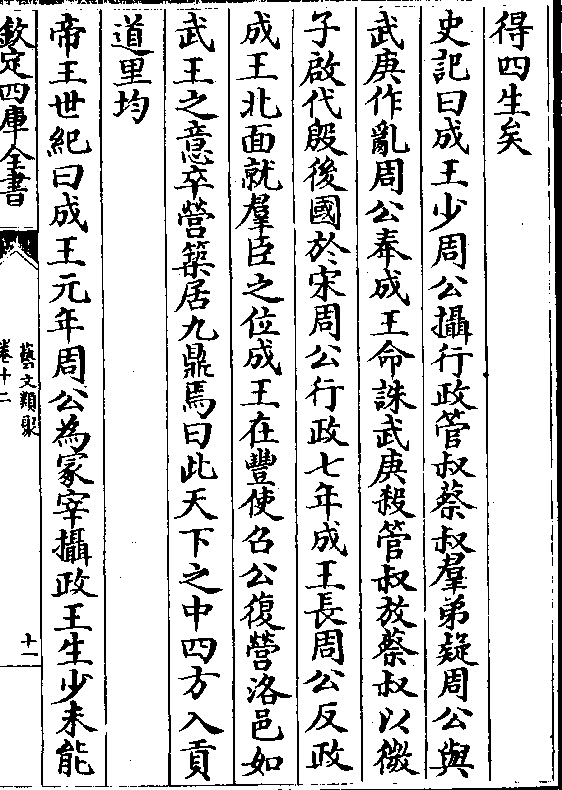 得四生矣
史記曰成王少周公攝行政管叔蔡叔羣弟疑周公與
武庚作亂周公奉成王命誅武庚殺管叔放蔡叔以微
子啟代殷後國於宋周公行政七年成王長周公反政
成王北面就羣臣之位成王在豐使召公復營洛邑如
武王之意卒營築居九鼎焉曰此天下之中四方入貢
道里均
帝王世紀曰成王元年周公為冢宰攝政王生少未能
欽定四庫全書
藝文類聚
卷十二
十一